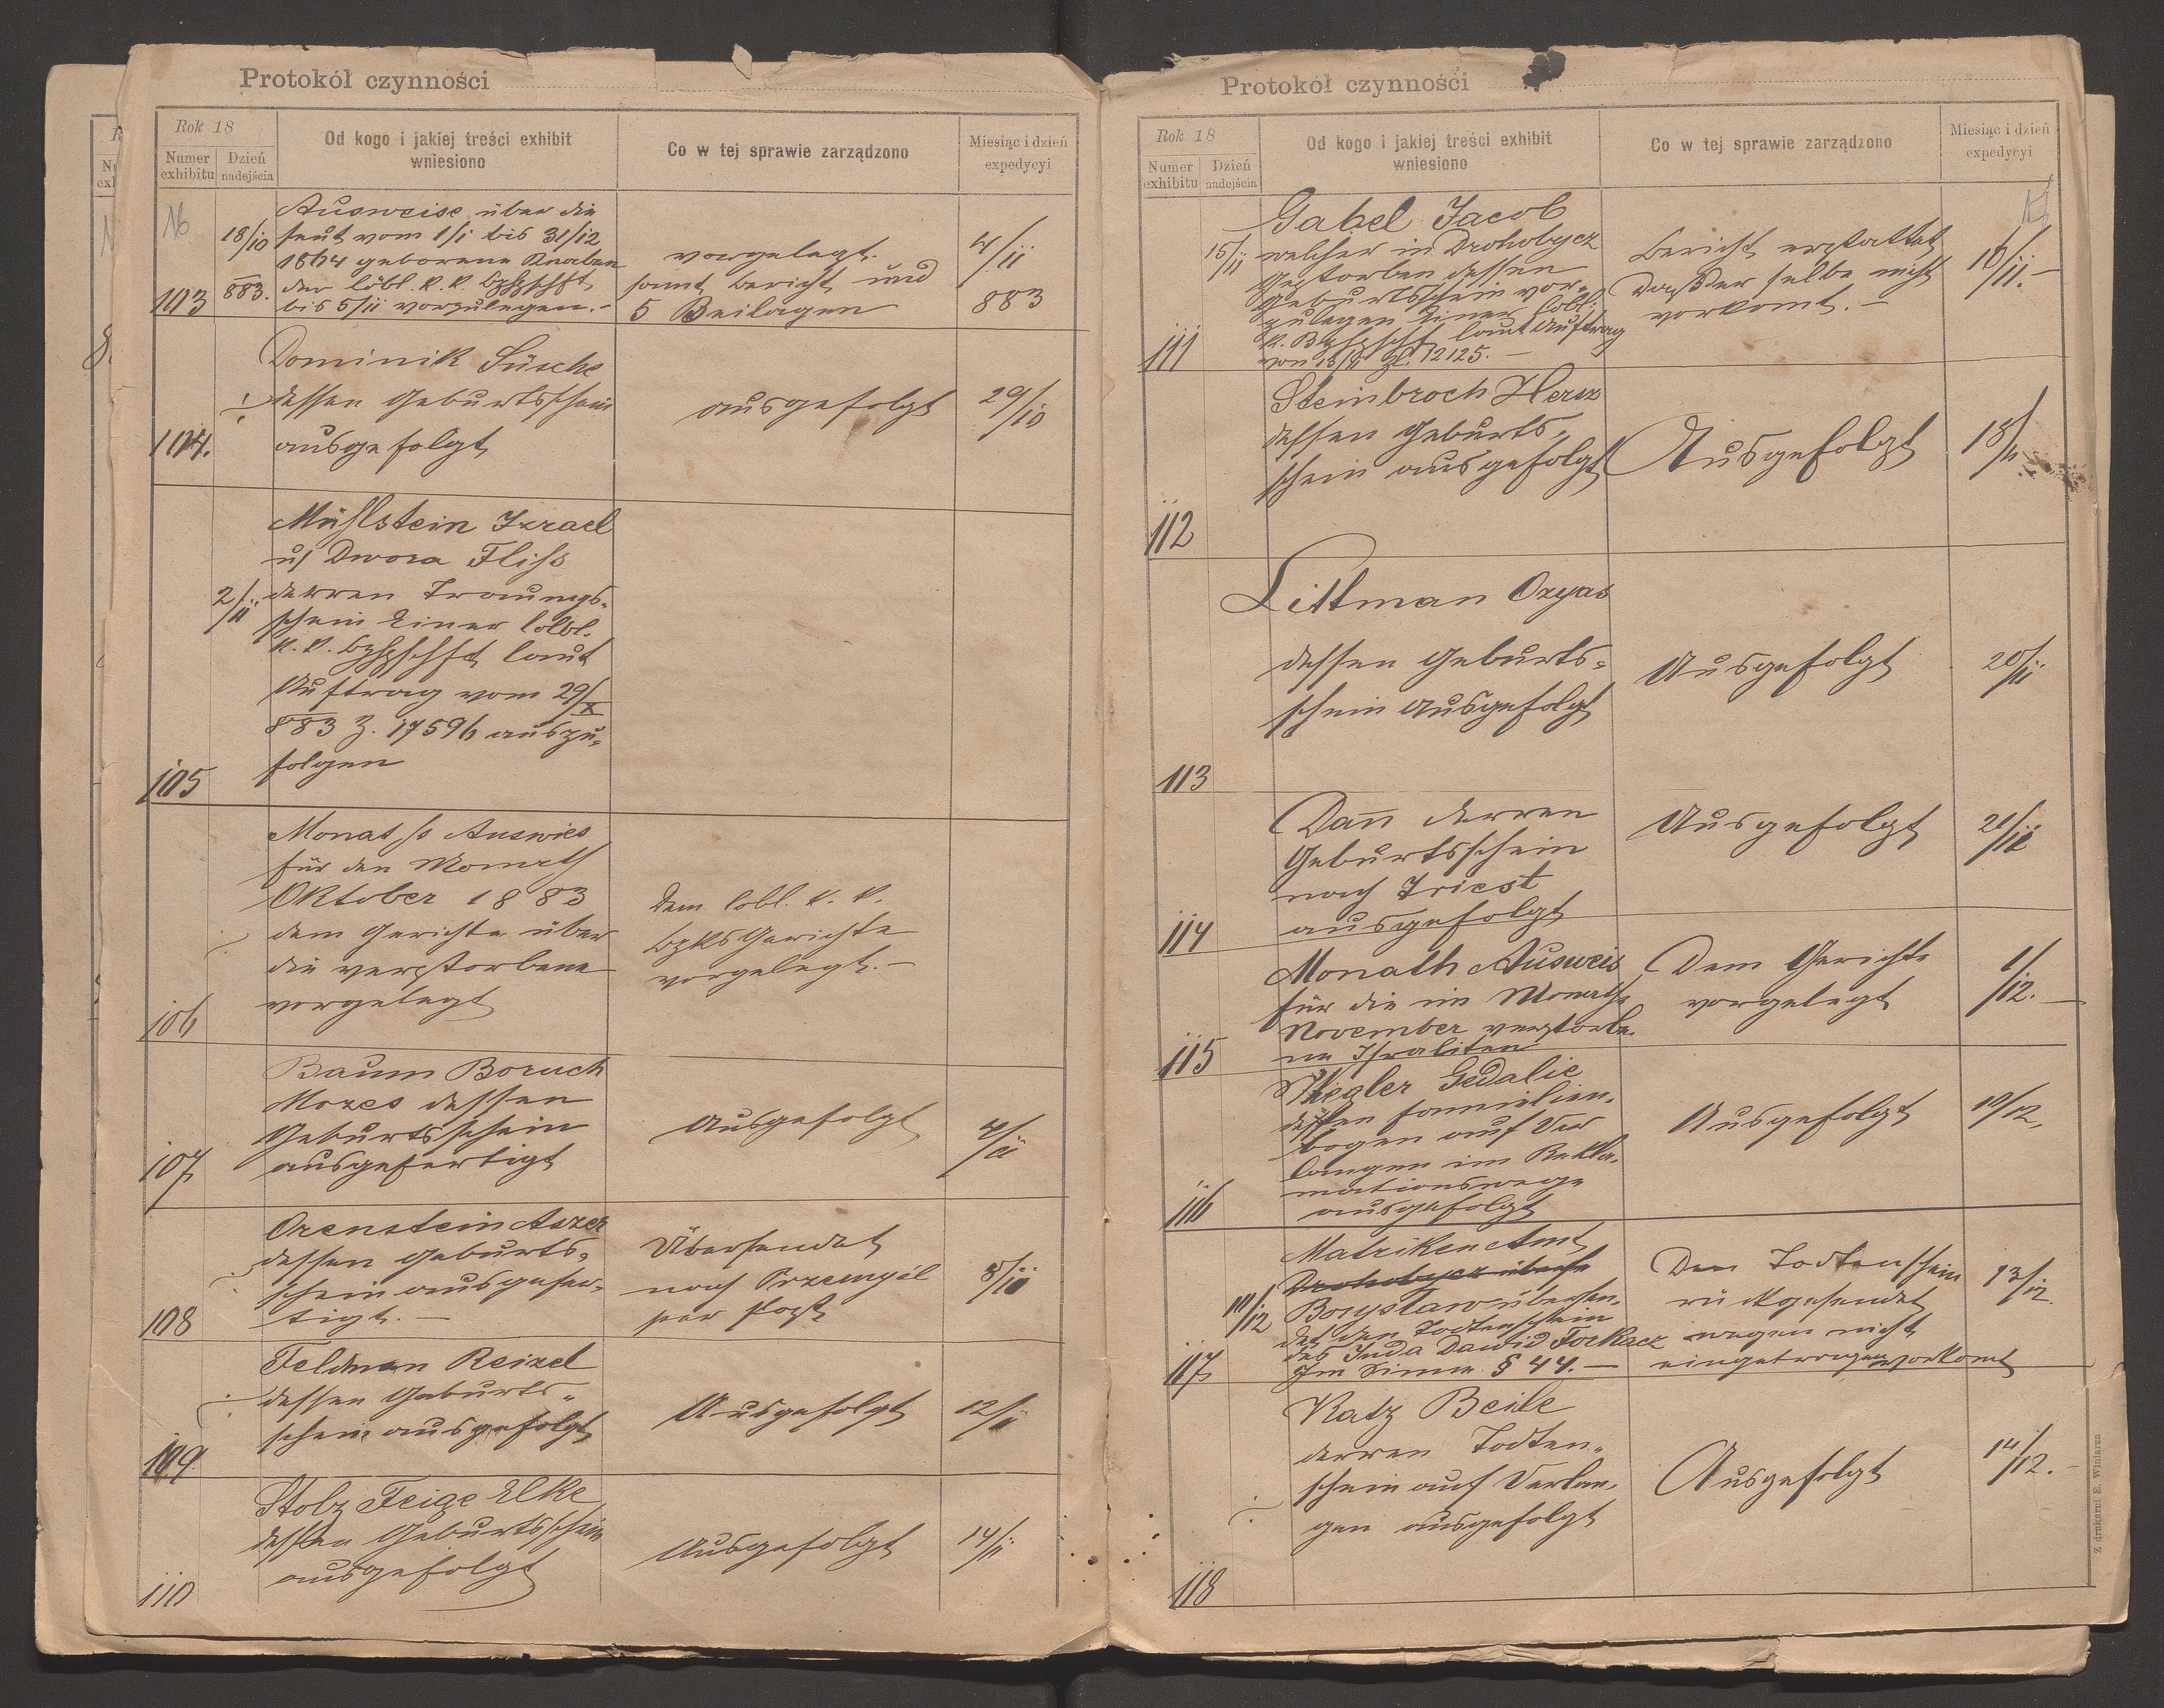 Protokół czynności
Rok 18
Numer exhibitu
Dzień nadejścia
Od kogo i jakiej treści exhibit wniesiono
Co w tej sprawie zarządzono
Miesiąc i dzień expedycyi
16
103
18/10 883.
Ausweise über die
heut vom 1/1 bis 31/12
1864 geborene Knaben
der löbl. k. k. Bzhpschft
bis 5/11 vorzulegen.-
vorgelegt.
samt Bericht und
5 Beilagen
4/11
883
104.
Dominik Süsche
dessen Geburtsschein
ausgefolgt
ausgefolgt
29/10
105
2/11
Mühlstein Izrael
u/ Dwora Fliss
derren Trauungs=
schein Einer löbl.
k. k. Bzhpschft laut
Auftrag vom 29/X
883 Z. 17596 auszu=
folgen
106
Monats Auswies
für den Monath
Oktober 1883
dem Gerichte über
die verstorbene
vorgelegt
Dem löbl. k. k.
Bzks Gerichte
vorgelegt.-
107
Baum Boruch
Mozes dessen
Geburtsschein
ausgefertigt
Ausgefolgt
4/11
108
Orenstein Aszer
dessen Geburts=
schein ausgefer=
tigt.-
Übersendet
nach Przemysl
per Post
8/11
109
Feldman Reizel
dessen Geburts=
schein ausgefolgt
Ausgefolgt
12/11
110
Stolz Feige Elke
dessen Geburtsschein
ausgefolgt
Ausgefolgt
14/11
Protokół czynności
Rok 18
Numer exhibitu
Dzień nadejścia
Od kogo i jakiej treści exhibit wniesiono
Co w tej sprawie zarządzono
Miesiąc i dzień expedycyi
17
111
15/11
Gabel Jacob
welcher in Drohobycz
gestorben dessen
Geburtsschein vor=
zulegen Einer löbl.
k. Bzhpschft laut Auftrag
von 13/11 Zl. 12125.-
Bericht erstattet
Dass der selbe nicht
vorkomt.-
16/11.-
112
Steinbroch Hersz
dessen Geburts=
schein ausgefolgt
Ausgefolgt
18/11
113
Littman Ozyas
dessen Geburts=
schein ausgefolgt
Ausgefolgt
20/11
114
Dañ derren
Geburtsschein
nach Triest
ausgefolgt
Ausgefolgt
21/11
115
Monath Ausweis
für die im Monathe
November verstorbe=
ne Israliten
Dem Gerichte
vorgelegt
1/12.-
116
Gedalie
dessen Familien=
bogen auf Ver
langen im Rekla=
mationswege
ausgefolgt
Ausgefolgt
10/12,
117
10/12
Matriken Amt
Drohobycz übers
Borysław übersen=
det den Todtenschein
des Juda Dawid Forkacz
Im Sinne § 44.-
Den Todtenschein
rückgesendet
wegen nicht
eingetragen vorkomt
13/12.
118
Katz Beile
derren Todten=
schein auf Verlan=
gen ausgefolgt
Ausgefolgt
14/12.-
Z drukarni E. Winiarza